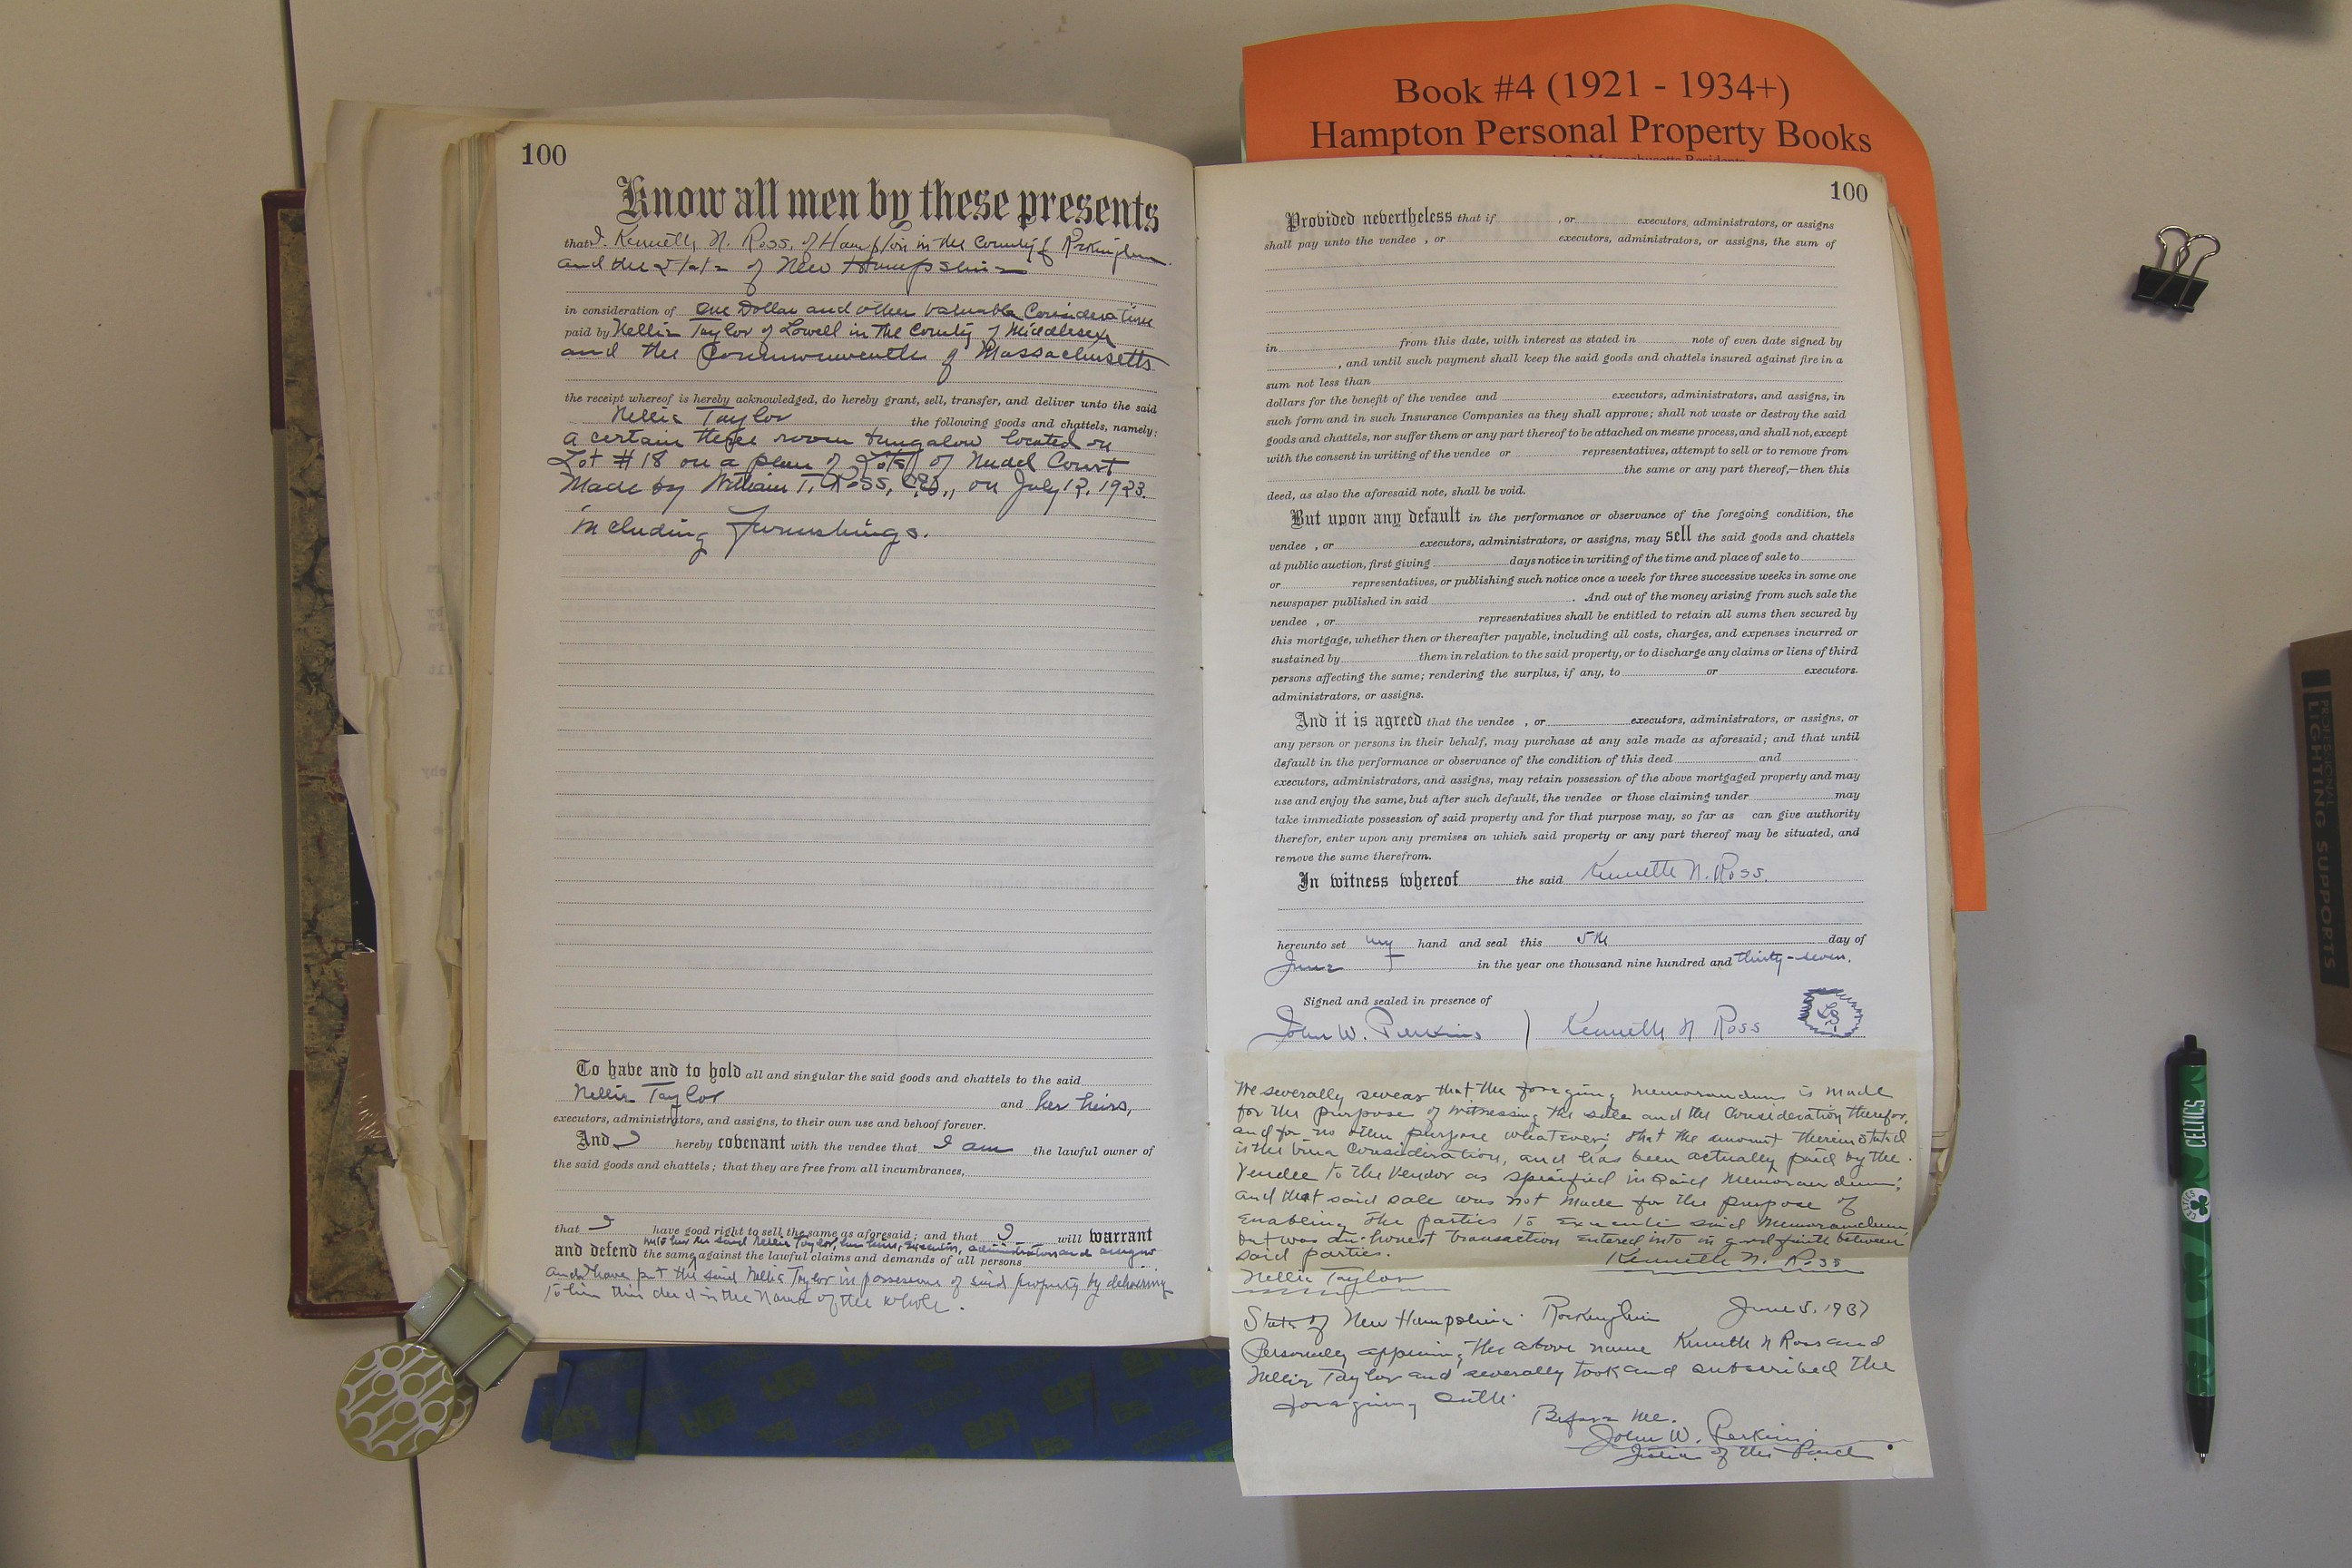 Book #4 (1921 - 1934+)
Hampton Personal Property Books
100
Know all men by these presents
that I, Kenneth N. Ross, of Hampton in the County of Rockingham
and the State of New Hampshire
in consideration of One Dollar and other valuable Consideration
paid by Nellie Taylor of Lowell in the County of Middlesex
and the Commonwealth of Massachusetts
the receipt whereof is hereby acknowledged, do hereby grant, sell, transfer, and deliver unto the said
Nellie Taylor the following goods and chattels, namely:
a certain three room bungalow located on
Lot #18 on a plan of Lots of Nudd Court
Made by William T. Ross, C.E., on July 12, 1923.
including Furnishings.
To have and to hold all and singular the said goods and chattels to the said
Nellie Taylor and her heirs,
executors, administrators, and assigns, to their own use and behoof forever.
And I hereby covenant with the vendee that I am the lawful owner of
the said goods and chattels; that they are free from all incumbrances,
that I have good right to sell the same as aforesaid; and that I will warrant
unto her the said Nellie Taylor, her heirs, executors, administrators and assigns
and defend the same against the lawful claims and demands of all persons
and have put the said Nellie Taylor in possession of said property by delivering
to him this deed in the name of the whole.
100
Provided nevertheless that if , or executors, administrators, or assigns
shall pay unto the vendee , or executors, administrators, or assigns, the sum of
in from this date, with interest as stated in note of even date signed by
, and until such payment shall keep the said goods and chattels insured against fire in a
sum not less than
dollars for the benefit of the vendee and executors, administrators, and assigns, in
such form and in such Insurance Companies as they shall approve; shall not waste or destroy the said
goods and chattels, nor suffer them or any part thereof to be attached on mesne process, and shall not, except
with the consent in writing of the vendee or representatives, attempt to sell or to remove from
the same or any part thereof,—then this
deed, as also the aforesaid note, shall be void.
But upon any default in the performance or observance of the foregoing condition, the
vendee , or executors, administrators, or assigns, may sell the said goods and chattels
at public auction, first giving days notice in writing of the time and place of sale to
or representatives, or publishing such notice once a week for three successive weeks in some one
newspaper published in said . And out of the money arising from such sale the
vendee , or representatives shall be entitled to retain all sums then secured by
this mortgage, whether then or thereafter payable, including all costs, charges, and expenses incurred or
sustained by them in relation to the said property, or to discharge any claims or liens of third
persons affecting the same; rendering the surplus, if any, to or executors.
administrators, or assigns.
And it is agreed that the vendee , or executors, administrators, or assigns, or
any person or persons in their behalf, may purchase at any sale made as aforesaid; and that until
default in the performance or observance of the condition of this deed and
executors, administrators, and assigns, may retain possession of the above mortgaged property and may
use and enjoy the same, but after such default, the vendee or those claiming under may
take immediate possession of said property and for that purpose may, so far as can give authority
therefor, enter upon any premises on which said property or any part thereof may be situated, and
remove the same therefrom.
In witness whereof the said Kenneth N. Ross.
hereunto set my hand and seal this 5th day of
June in the year one thousand nine hundred and thirty-seven.
Signed and sealed in presence of
John W. Perkins ) Kenneth N Ross LS.
We severally swear that the foregoing memorandum is made
for the purpose of witnessing the sale and the consideration therefor,
and for no other purpose whatever; that the amount therein stated
is the true consideration, and has been actually paid by the
Vendee to the Vendor as specified in said memorandum;
and that said sale was not made for the purpose of
enabling the parties to execute said memorandum,
but was an honest transaction entered into in good faith between
said parties. Kenneth N. Ross
Nellie Taylor
State of New Hampshire. Rockingham June 5, 1937
Personally appearing the above name Kenneth N Ross and
Nellie Taylor and severally took and subscribed the
foregoing oath.
Before me.
John W. Perkins
Justice of the Peace
CELTICS
CELTICS
PROFESSIONAL
LIGHTING SUPPORTS